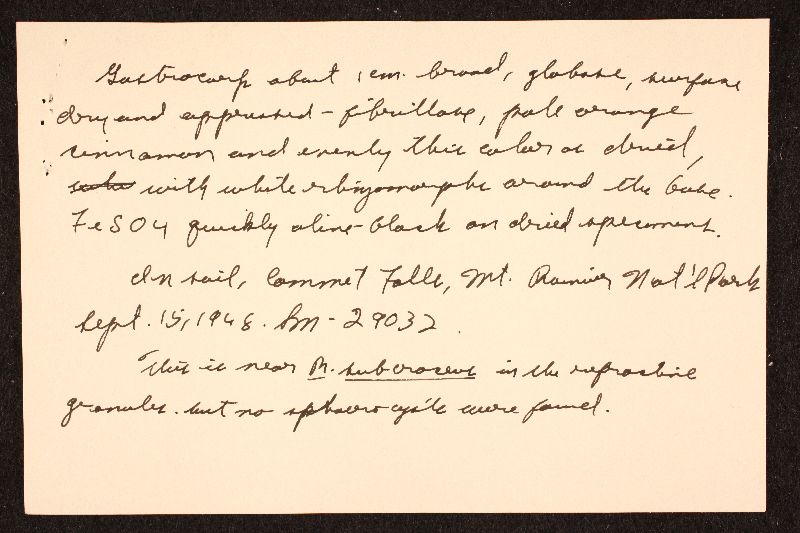 Gastrocarp about 1 cm. broad, globose, surface
dry and appressed-fibrillose, pale orange
cinnamon and evenly this color as dried,
with white rhizomorphs around the base.
FeSO4 quickly olive-black on dried specimens.
In soil, Commet Falls, Mt. Rainier Nat'l Park
Sept. 15, 1948. Sm-29032
This is near R. subcroceus in the refractive
granules. but no sphaerocysts were found.